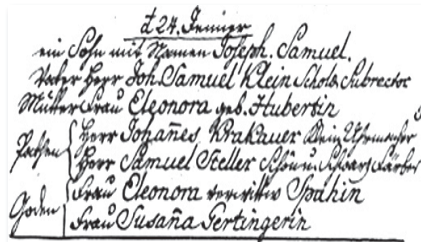 d 24. Jenner
ein Sohn mit Namen Joseph. Samuel.
Vater Herr Joh. Samuel Klein Schola Subrector
Mutter Frau Eleonora geb. Hubertin
Pathen Herr Johañes Krakauer Klein Uhrmacher
Herr Samuel Steller Schön u. Schwarz Färber
Goden Frau Eleonora verwittw Spahin
Frau Susaña Gertingerin